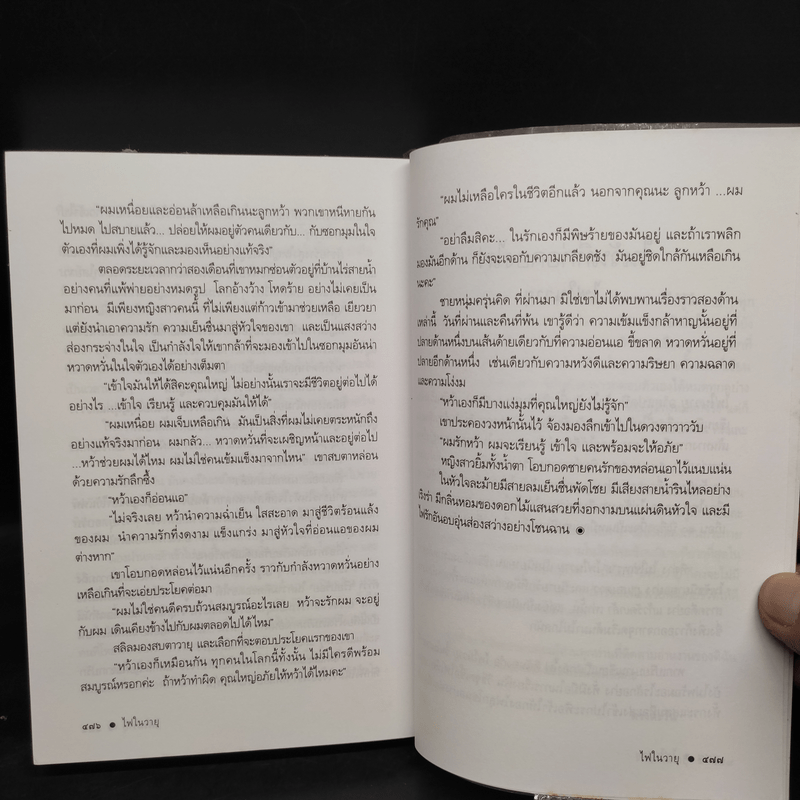 "ผมเหนื่อยและอ่อนล้าเหลือเกินนะลูกหว้า พวกเขาหนีหายกัน
ไปหมด ไปสบายแล้ว... ปล่อยให้ผมอยู่ตัวคนเดียวกับ... กับซอกมุมในใจ
ตัวเองที่ผมเพิ่งได้รู้จักและมองเห็นอย่างแท้จริง"
ตลอดระยะเวลากว่าสองเดือนที่เขาหมกซ่อนตัวอยู่ที่บ้านไร่สายน้ำ
อย่างคนที่แพ้พ่ายอย่างหมดรูป โลกอ้างว้าง โหดร้าย อย่างไม่เคยเป็น
มาก่อน มีเพียงหญิงสาวคนนี้ ที่ไม่เพียงแต่ก้าวเข้ามาช่วยเหลือ เยียวยา
แต่ยังนำเอาความรัก ความเย็นชื่นมาสู่หัวใจของเขา และเป็นแสงสว่าง
ส่องกระจ่างในใจ เป็นกำลังใจให้เขากล้าที่จะมองเข้าไปในซอกมุมอันน่า
หวาดหวั่นในใจตัวเองได้อย่างเต็มตา
"เข้าใจมันให้ได้สิคะคุณใหญ่ ไม่อย่างนั้นเราจะมีชีวิตอยู่ต่อไปได้
อย่างไร ...เข้าใจ เรียนรู้ และควบคุมมันให้ได้"
"ผมเหนื่อย ผมเจ็บเหลือเกิน มันเป็นสิ่งที่ผมไม่เคยตระหนักถึง
อย่างแท้จริงมาก่อน ผมกลัว... หวาดหวั่นที่จะเผชิญหน้าและอยู่ต่อไป
...หว้าช่วยผมได้ไหม ผมไม่ใช่คนเข้มแข็งมาจากไหน" เขาสบตาหล่อน
ด้วยความรักลึกซึ้ง
"หว้าเองก็อ่อนแอ"
"ไม่จริงเลย หว้านำความฉ่ำเย็น ใสสะอาด มาสู่ชีวิตร้อนแล้ง
ของผม นำความรักที่งดงาม แข็งแกร่ง มาสู่หัวใจที่อ่อนแอของผม
ต่างหาก"
เขาโอบกอดหล่อนไว้แน่นอีกครั้ง ราวกับกำลังหวาดหวั่นอย่าง
เหลือเกินที่จะเอ่ยประโยคต่อมา
"ผมไม่ใช่คนดีครบถ้วนสมบูรณ์อะไรเลย หว้าจะรักผม จะอยู่
กับผม เดินเคียงข้างไปกับผมตลอดไปได้ไหม"
สลิลมองสบตาวายุ และเลือกที่จะตอบประโยคแรกของเขา
"หว้าเองก็เหมือนกัน ทุกคนในโลกนี้ทั้งนั้น ไม่มีใครดีพร้อม
สมบูรณ์หรอกค่ะ ถ้าหว้าทำผิด คุณใหญ่อภัยให้หว้าได้ไหมคะ"
๔๗๖ ● ไฟในวายุ
"ผมไม่เหลือใครในชีวิตอีกแล้ว นอกจากคุณนะ ลูกหว้า ...ผม
รักคุณ"
"อย่าลืมสิคะ... ในรักเองก็มีพิษร้ายของมันอยู่ และถ้าเราพลิก
มองมันอีกด้าน ก็ยังจะเจอกับความเกลียดชัง มันอยู่ชิดใกล้กันเหลือเกิน
นะคะ"
ชายหนุ่มครุ่นคิด ที่ผ่านมา มิใช่เขาไม่ได้พบพานเรื่องราวสองด้าน
เหล่านี้ วันที่ผ่านและคืนที่พ้น เขารู้ดีว่า ความเข้มแข็งกล้าหาญนั้นอยู่ที่
ปลายด้านหนึ่งบนเส้นด้ายเดียวกับที่ความอ่อนแอ ขี้ขลาด หวาดหวั่นอยู่ที่
ปลายอีกด้านหนึ่ง เช่นเดียวกับความหวังดีและความริษยา ความฉลาด
และความโง่งม
"หว้าเองก็มีบางแง่มุมที่คุณใหญ่ยังไม่รู้จัก"
เขาประคองวงหน้านั้นไว้ จ้องมองลึกเข้าไปในดวงตาวาววับ
"ผมรักหว้า ผมจะเรียนรู้ เข้าใจ และพร้อมจะให้อภัย"
หญิงสาวยิ้มทั้งน้ำตา โอบกอดชายคนรักของหล่อนเอาไว้แนบแน่น
ในหัวใจละม้ายมีสายลมเย็นชื่นพัดโชย มีเสียงสายน้ำรินไหลอย่าง
เริงร่า มีกลิ่นหอมของดอกไม้แสนสวยที่งอกงามบนแผ่นดินหัวใจ และมี
ไฟรักอันอบอุ่นส่องสว่างอย่างโชนฉาน ◉
ไฟในวายุ ● ๔๗๗